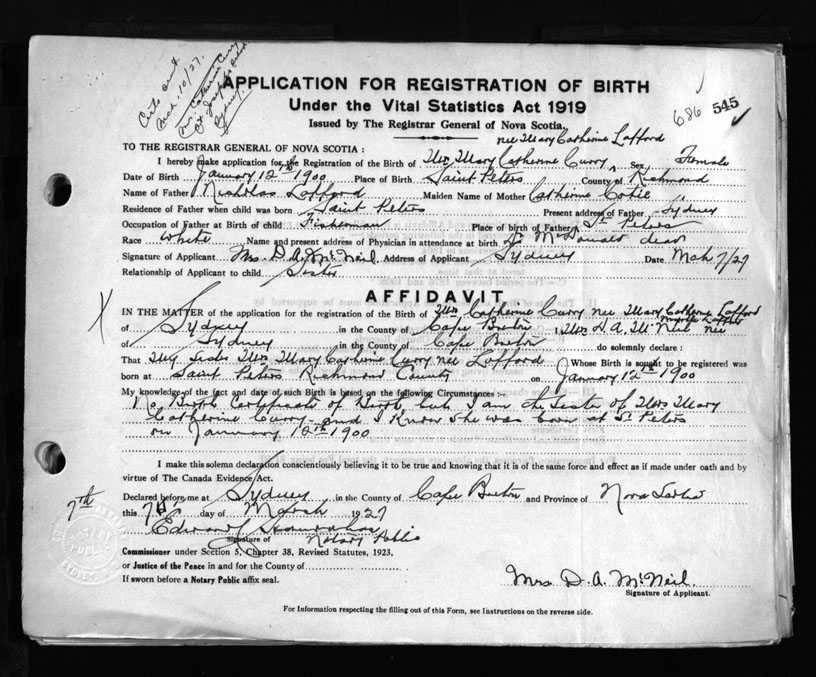 Cert's sent
Mch. 10/27.
Mrs Catherine Curry
Sydney.
APPLICATION FOR REGISTRATION OF BIRTH
Under the Vital Statistics Act 1919
Issued by The Registrar General of Nova Scotia.
686 545
nee Mary Catherine Lafford
TO THE REGISTRAR GENERAL OF NOVA SCOTIA:
I hereby make application for the Registration of the Birth of Mrs Mary Catherine Curry Sex Female
Date of Birth January 12th 1900 Place of Birth Saint Peters County of Richmond
Name of Father Nicholas Lafford Maiden Name of Mother Catherine
Residence of Father when child was born Saint Peters Present address of Father Sydney
Occupation of Father at Birth of child Fisherman Place of birth of Father St Peters
Race White Name and present address of Physician in attendance at birth Dr McDonald dead
Signature of Applicant Mrs. D. A. McNeil Address of Applicant Sydney Date Mch 7/27
Relationship of Applicant to child Sister
AFFIDAVIT
IN THE MATTER of the application for the registration of the Birth of Mrs Catherine Curry nee Mary Catherine Lafford
of Sydney in the County of Cape Breton I Mrs D. A. McNeil nee Lafford
of Sydney in the County of Cape Breton do solemnly declare:
That My Sister Mrs Mary Catherine Curry nee Lafford Whose Birth is sought to be registered was
born at Saint Peters Richmond County on January 12th 1900
My knowledge of the fact and date of such Birth is based on the following Circumstances:--
No Birth Certificate of Birth, but I am the Sister of Mrs Mary
Catherine Curry and I Know She was born at St Peters
on January 12th 1900
I make this solemn declaration conscientiously believing it to be true and knowing that it is of the same force and effect as if made under oath and by
virtue of The Canada Evidence Act.
Declared before me at Sydney in the County of Cape Breton and Province of Nova Scotia
7th
this 7th day of March 1927
Edward
Signature of Notary Public
Commissioner under Section 5, Chapter 38, Revised Statutes, 1923,
or Justice of the Peace in and for the County of
If sworn before a Notary Public affix seal.
Mrs D. A. McNeil.
Signature of Applicant.
For Information respecting the filling out of this Form, see Instructions on the reverse side.